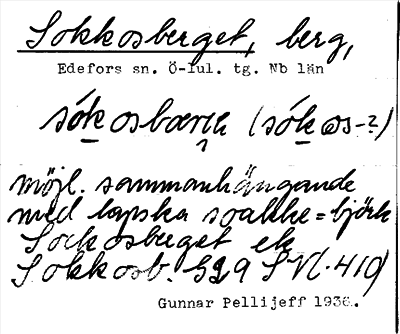 Sokkosberget, berg,
Edefors sn. Ö-Lul. tg. Nb län
sókosbærje (sókøs-?)
möjl. sammanhängande
med lapska soakke = björk
Sockosberget ek
Sokkosb. 529 SVl. 410)
Gunnar Pellijeff 1936.